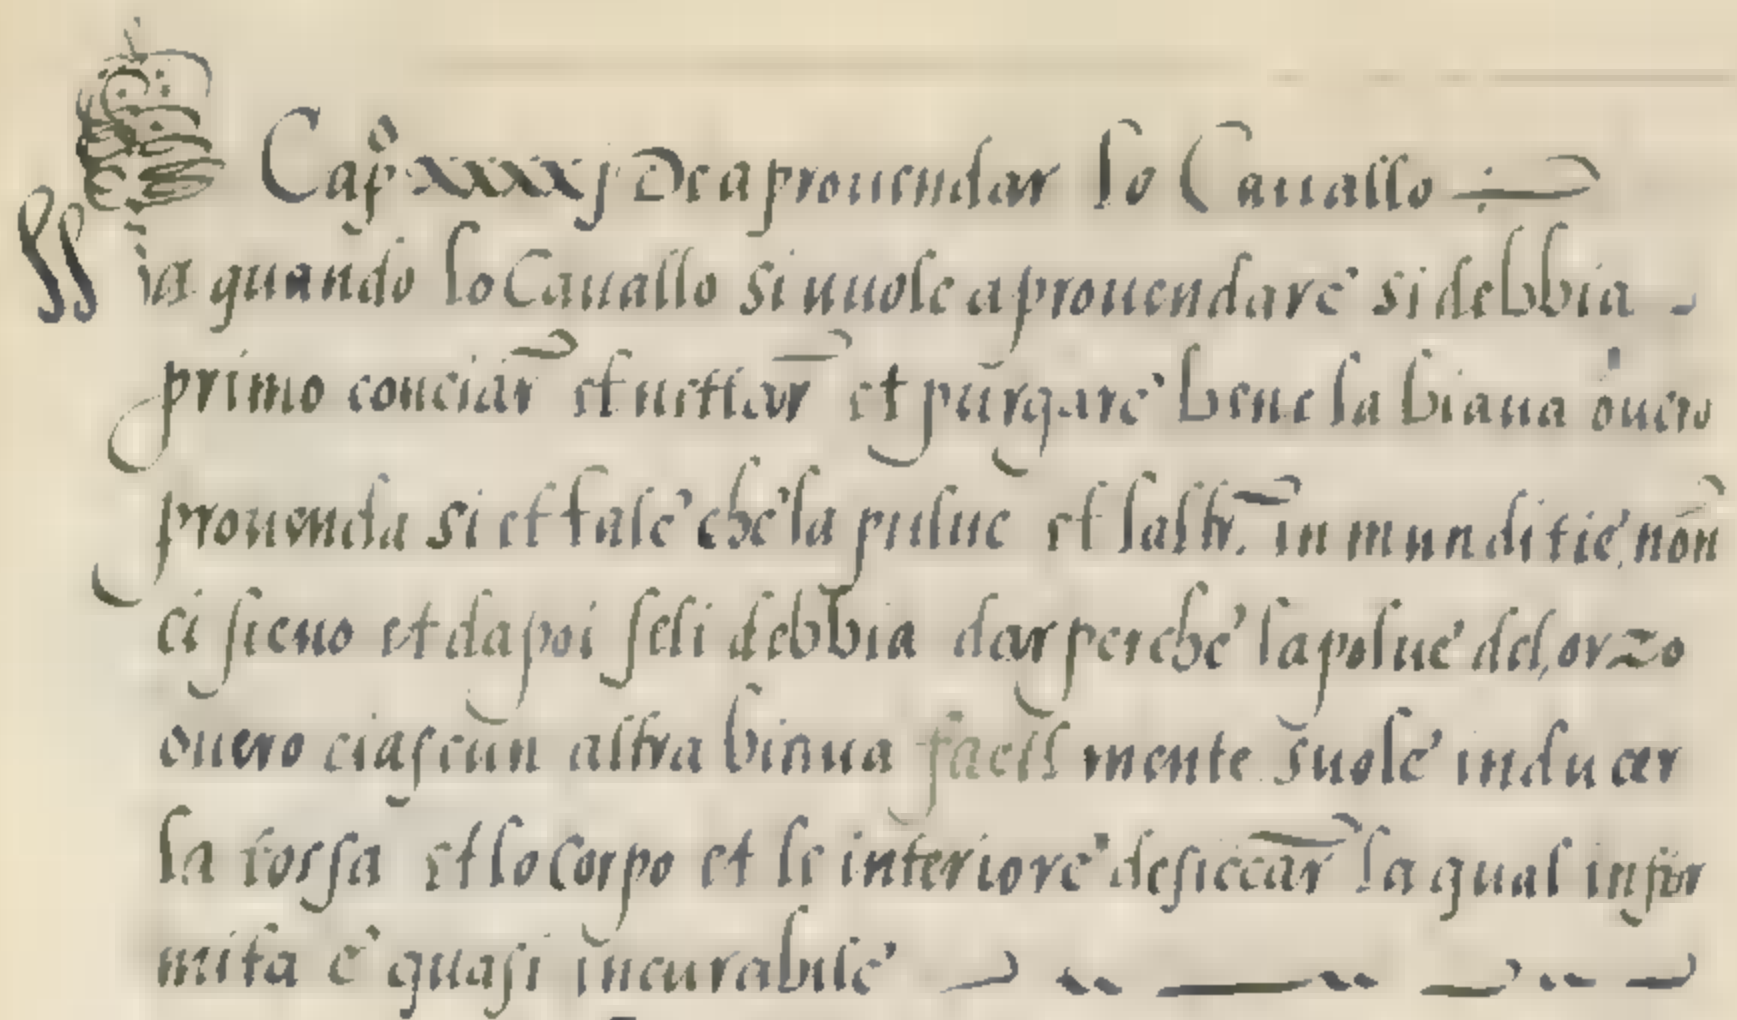 Cap.º xxxxj De aprouendar lo Cauallo
ia quando lo Cauallo si uuole aprouendare si debbia
primo conciar et nettar et purgare bene la biaua ouero
prouenda si et tale che la pulue et laltr. in munditie, non
ci sieno et dapoi seli debbia dar perche la polue del, orzo
ouero ciascun altra biaua facil mente suole inducer
la tossa et lo Corpo et le interiore desiccar la qual infir
mita e quasi incurabile